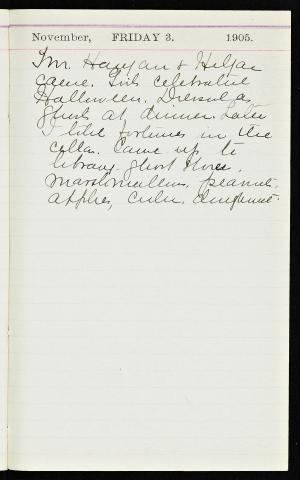 November, FRIDAY 3. 1905.
Mr. Hangan & Helgae
came. Girls celebrated
Halloween. Dressed as
ghosts at dinner. Later
I told fortunes in the
cellar. Came up to
library. ghost stories.
marshmallows, peanuts,
apples, cider, doughnuts.